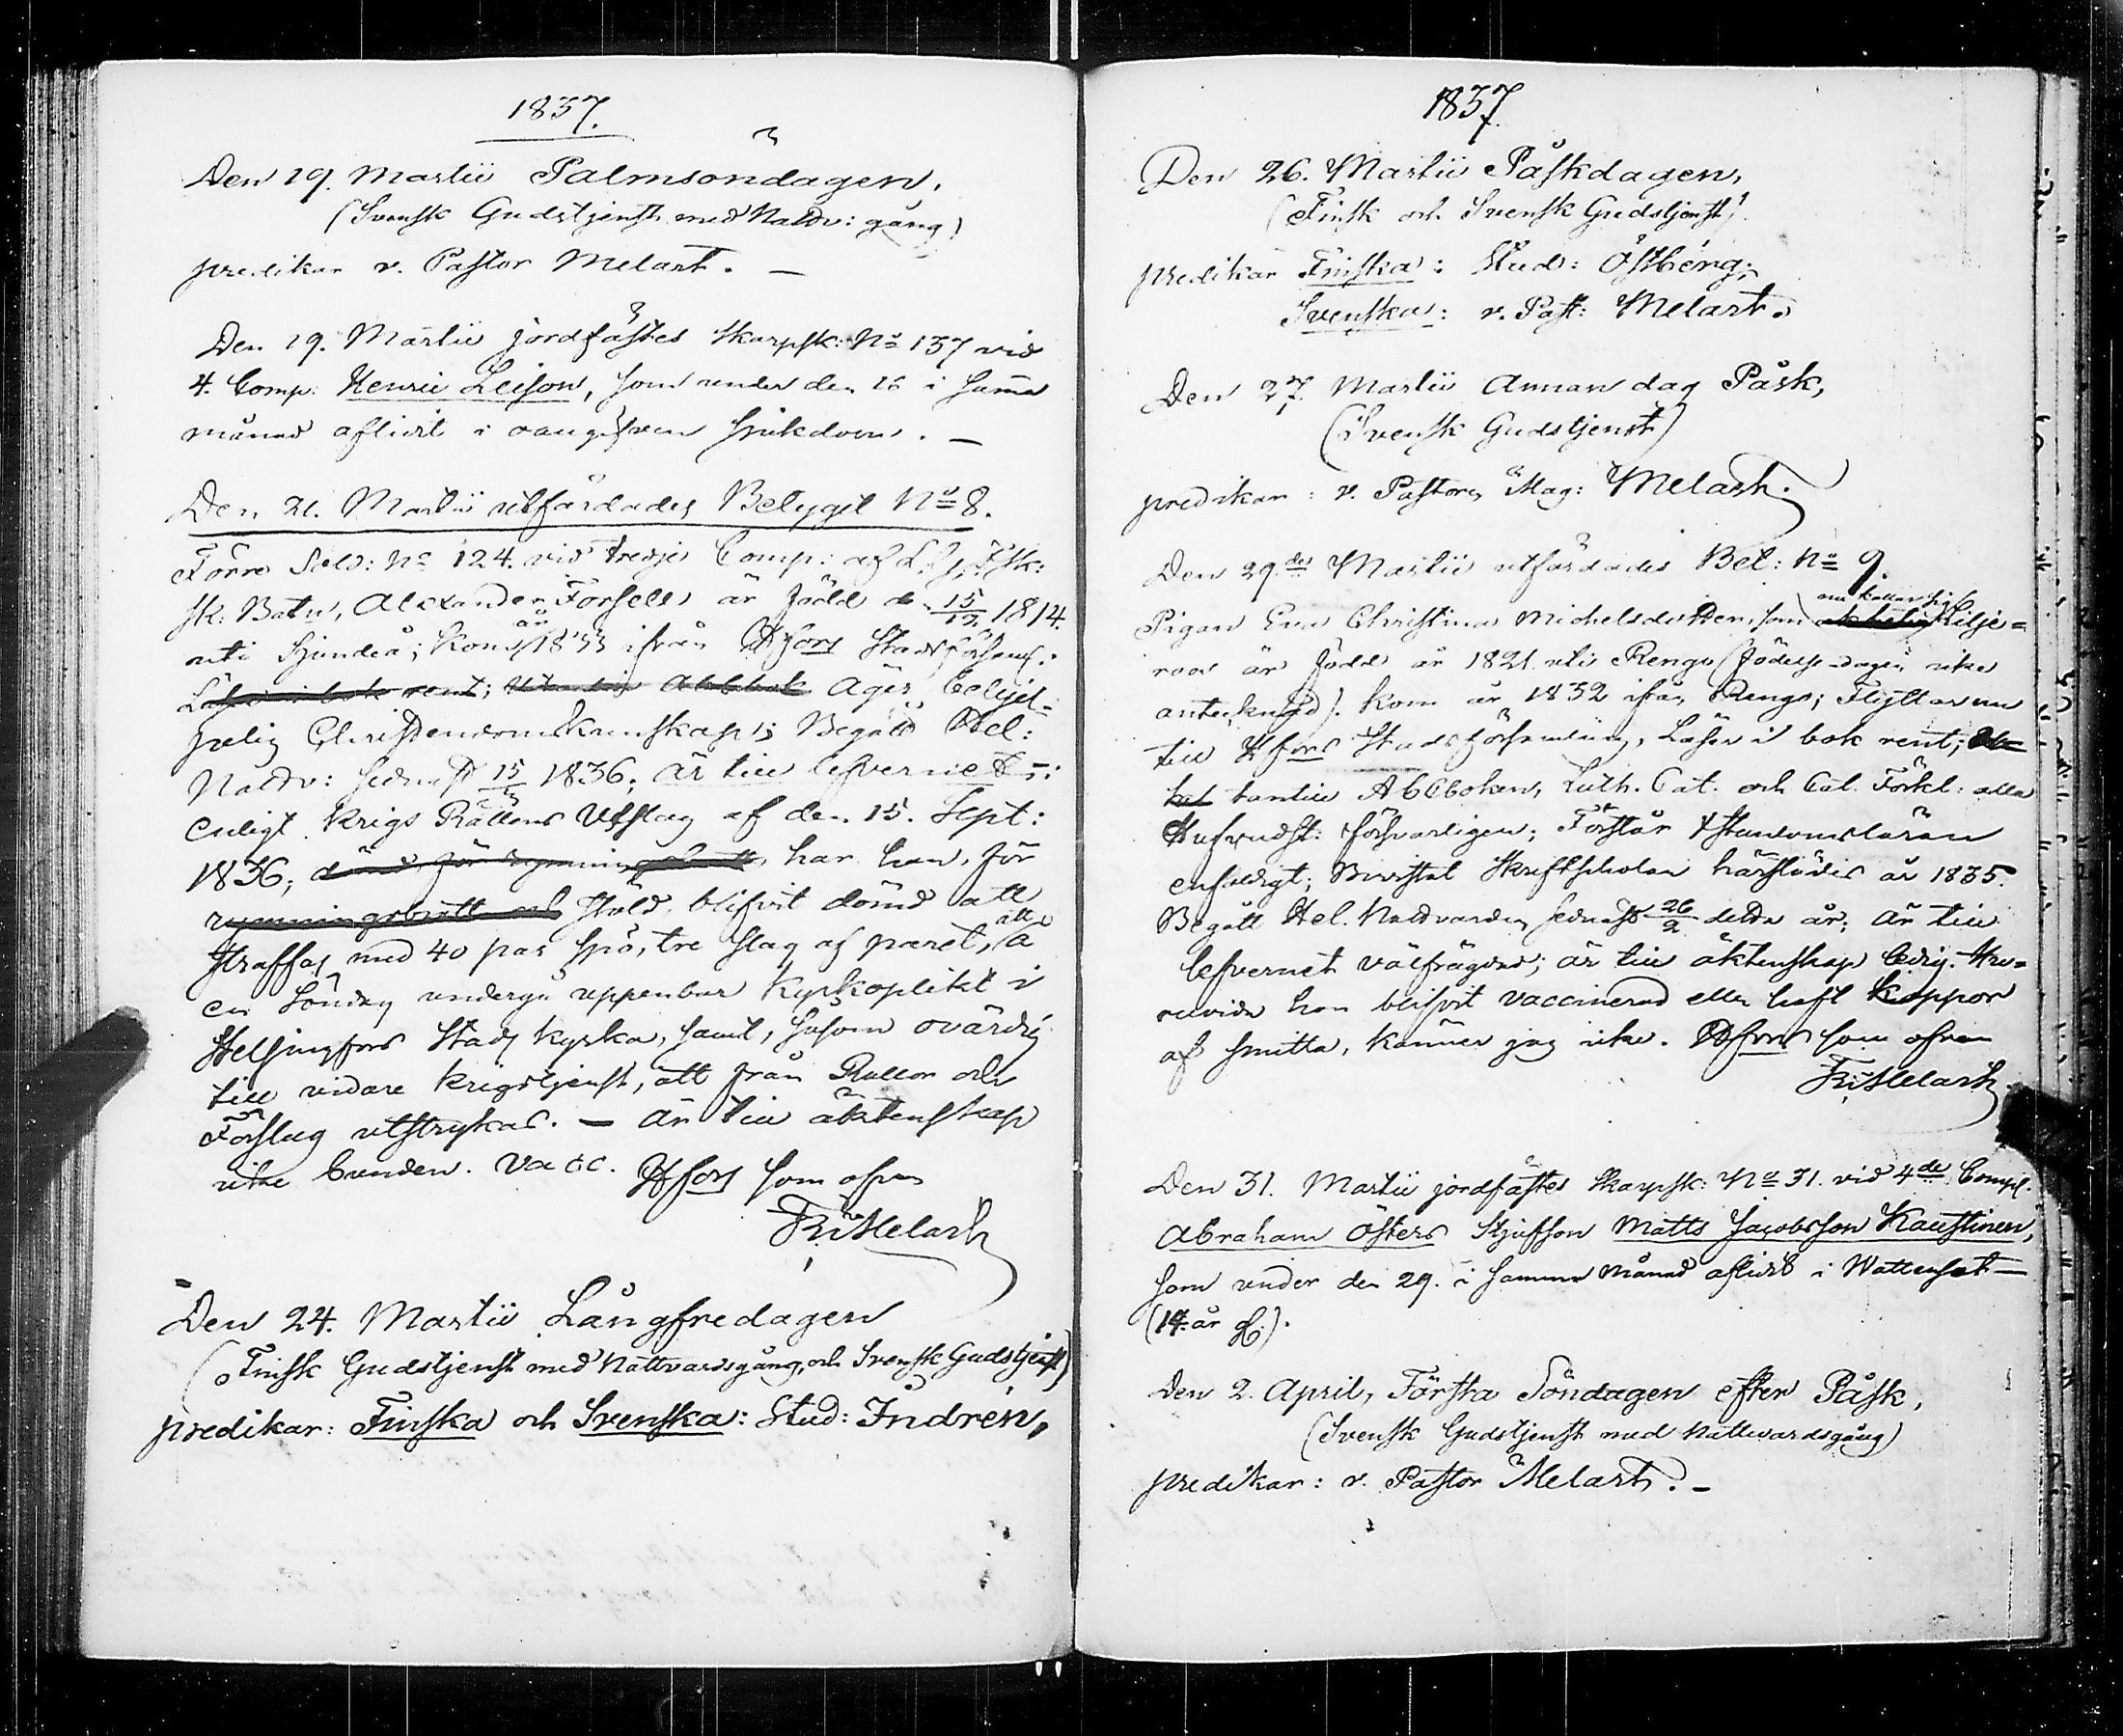 1837.
Den 19. Martii Palmsöndagen,
(Svensk Gudstjenst med Nattv: gång)
predikar v. Pastor Melart. —
Den 19. Martii jordfästes Skarpsk: No 137 vid
4. Comp. Henric Leison, som under den 16 i samma
månad aflidit i oangifven sjukdom. —
Den 21. Martii utfärdades Betyget No 8.
Förre Sold: No 124. vid tredje Comp: af
sk: Batn, Alexander Forsell är född d. 15/12 1814.
uti Sjundeå; Kom år 1833 ifrån Hfors Stadsförsaml:
Läser i bok rent; Äger behjel-
pelig Christendomskunskap; Begått Hel:
Nattv: sednast 15/ 1836; är till lefvernet
enligt Krigs Rättens Utslag af den 15. Sept:
1836; dömd för rymning har han, för
rymningsbrott och stöld, blifvit dömd att
straffas med 40 par spö, tre slag af paret, att å
en Söndag undergå uppenbar Kyrkoplikt i
Helsingfors Stads Kyrka, samt, såsom ovärdig
till vidare krigstjenst, att från Rullor och
Förslag utstrykas. — är till äktenskap
icke bunden. Vacc. Hfors som ofvan
Fr: Melart
Den 24. Martii Långfredagen
(Finsk Gudstjenst med Nattvardsgång, och Svensk Gudstjenst)
predikar: Finska och Svenska: Stud: Indrén,
1837.
Den 26. Martii Påskdagen,
(Finsk och Svensk Gudstjenst)
predikar Finska: Stud: Östberg;
Svenska: v. Past: Melart.
Den 27. Martii Annan dag Påsk,
(Svensk Gudstjenst)
predikar: v. Pastorn Mag: Melart.
Den 29.de Martii utfärdades Bel: No 9.
nu kallar sig
Pigan Eva Christina Michelsdotter, som Lilje=
roos är född år 1821. uti Rengo (födelsedagen icke
antecknad). Kom år 1832 ifrån Rengo; Flyttar nu
till Hfors Stadsförsamling, Läser i bok rent;
utantill ABCboken, Luth. Cat. och Cat. Förkl: alla
Hufvudst: försvarligen; Förstår Xstendomsläran
enfaldigt; Bevistat Skriftskolan härstädes år 1835.
Begått Hel. Nattvarden sednast 26/2 detta år; är till
lefvernet välfrägdad; är till äktenskap ledig. Hu=
ruvida hon blifvit vaccinerad eller haft Koppor
af smitta, känner jag icke. Hfors som ofvan
Fr: Melart
Den 31. Martii jordfästes Skarpsk: No 31. vid 4de Comp:
Abraham Östers Stjufson Matts Jacobsson Kaustinen,
som under den 29. i samma månad aflidit i Wattensot —
(14. år gl.).
Den 2. April, Första Söndagen efter Påsk,
(Svensk Gudstjenst med Nattvardsgång)
predikar: v. Pastor Melart. —